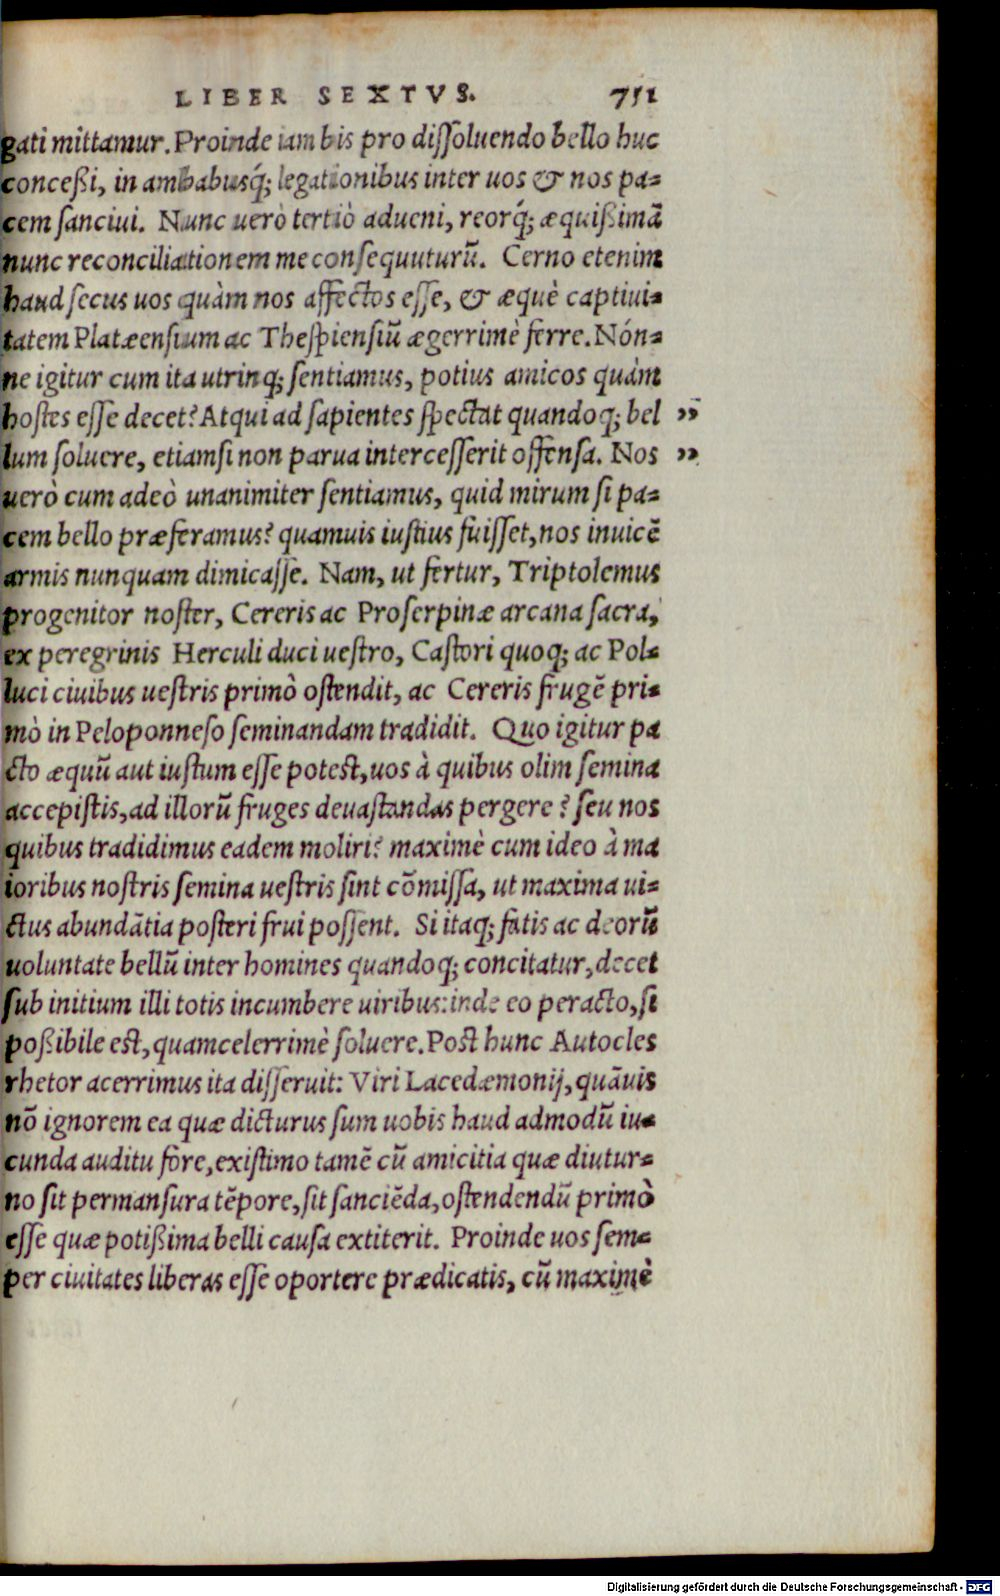 LIBER SEXTVS. 751
gati mittamur. Proinde iam bis pro diſſoluendo bello huc
conceßi, in ambabusq́; legationibus inter uos & nos pa-
cem ſanciui. Nunc uerò tertiò adueni, reorq́; æquißimā
nunc reconciliationem me conſequuturū. Cerno etenim
haud ſecus uos quàm nos affectos eſſe, & æquè captiui-
tatem Platæenſium ac Theſpienſiū ægerrimè ferre. Nón-
ne igitur cum ita utrinq; ſentiamus, potius amicos quàm
hoſtes eſſe decet? Atqui ad ſapientes ſpectat quandoq; bel ”
lum ſoluere, etiamſi non parua interceſſerit offenſa. Nos ”
uerò cum adeò unanimiter ſentiamus, quid mirum ſi pa-
cem bello præferamus? quamuis iuſtius fuiſſet, nos inuicē
armis nunquam dimicaſſe. Nam, ut fertur, Triptolemus
progenitor noſter, Cereris ac Proſerpinæ arcana ſacra,
ex peregrinis Herculi duci ueſtro, Caſtori quoq; ac Pol-
luci ciuibus ueſtris primò oſtendit, ac Cereris frugē pri-
mò in Peloponneſo ſeminandam tradidit. Quo igitur pa
cto æquū aut iuſtum eſſe poteſt, uos à quibus olim ſemina
accepiſtis, ad illorū fruges deuaſtandas pergere? ſeu nos
quibus tradidimus eadem moliri? maximè cum ideo à ma
ioribus noſtris ſemina ueſtris ſint cōmiſſa, ut maxima ui-
ctus abundātia poſteri frui poſſent. Si itaq; fatis ac deorū
uoluntate bellū inter homines quandoq; concitatur, decet
ſub initium illi totis incumbere uiribus: inde eo peracto, ſi
poßibile eſt, quamcelerrimè ſoluere. Poſt hunc Autocles
rhetor acerrimus ita diſſeruit: Viri Lacedæmonij, quāuis
nō ignorem ea quæ dicturus ſum uobis haud admodū iu-
cunda auditu fore, exiſtimo tamē cū amicitia quæ diutur-
no ſit permanſura tēpore, ſit ſanciēda, oſtendendū primò
eſſe quæ potißima belli cauſa extiterit. Proinde uos ſem-
per ciuitates liberas eſſe oportere prædicatis, cū maximè
Digitalisierung gefördert durch die Deutsche Forschungsgemeinschaft - DFG